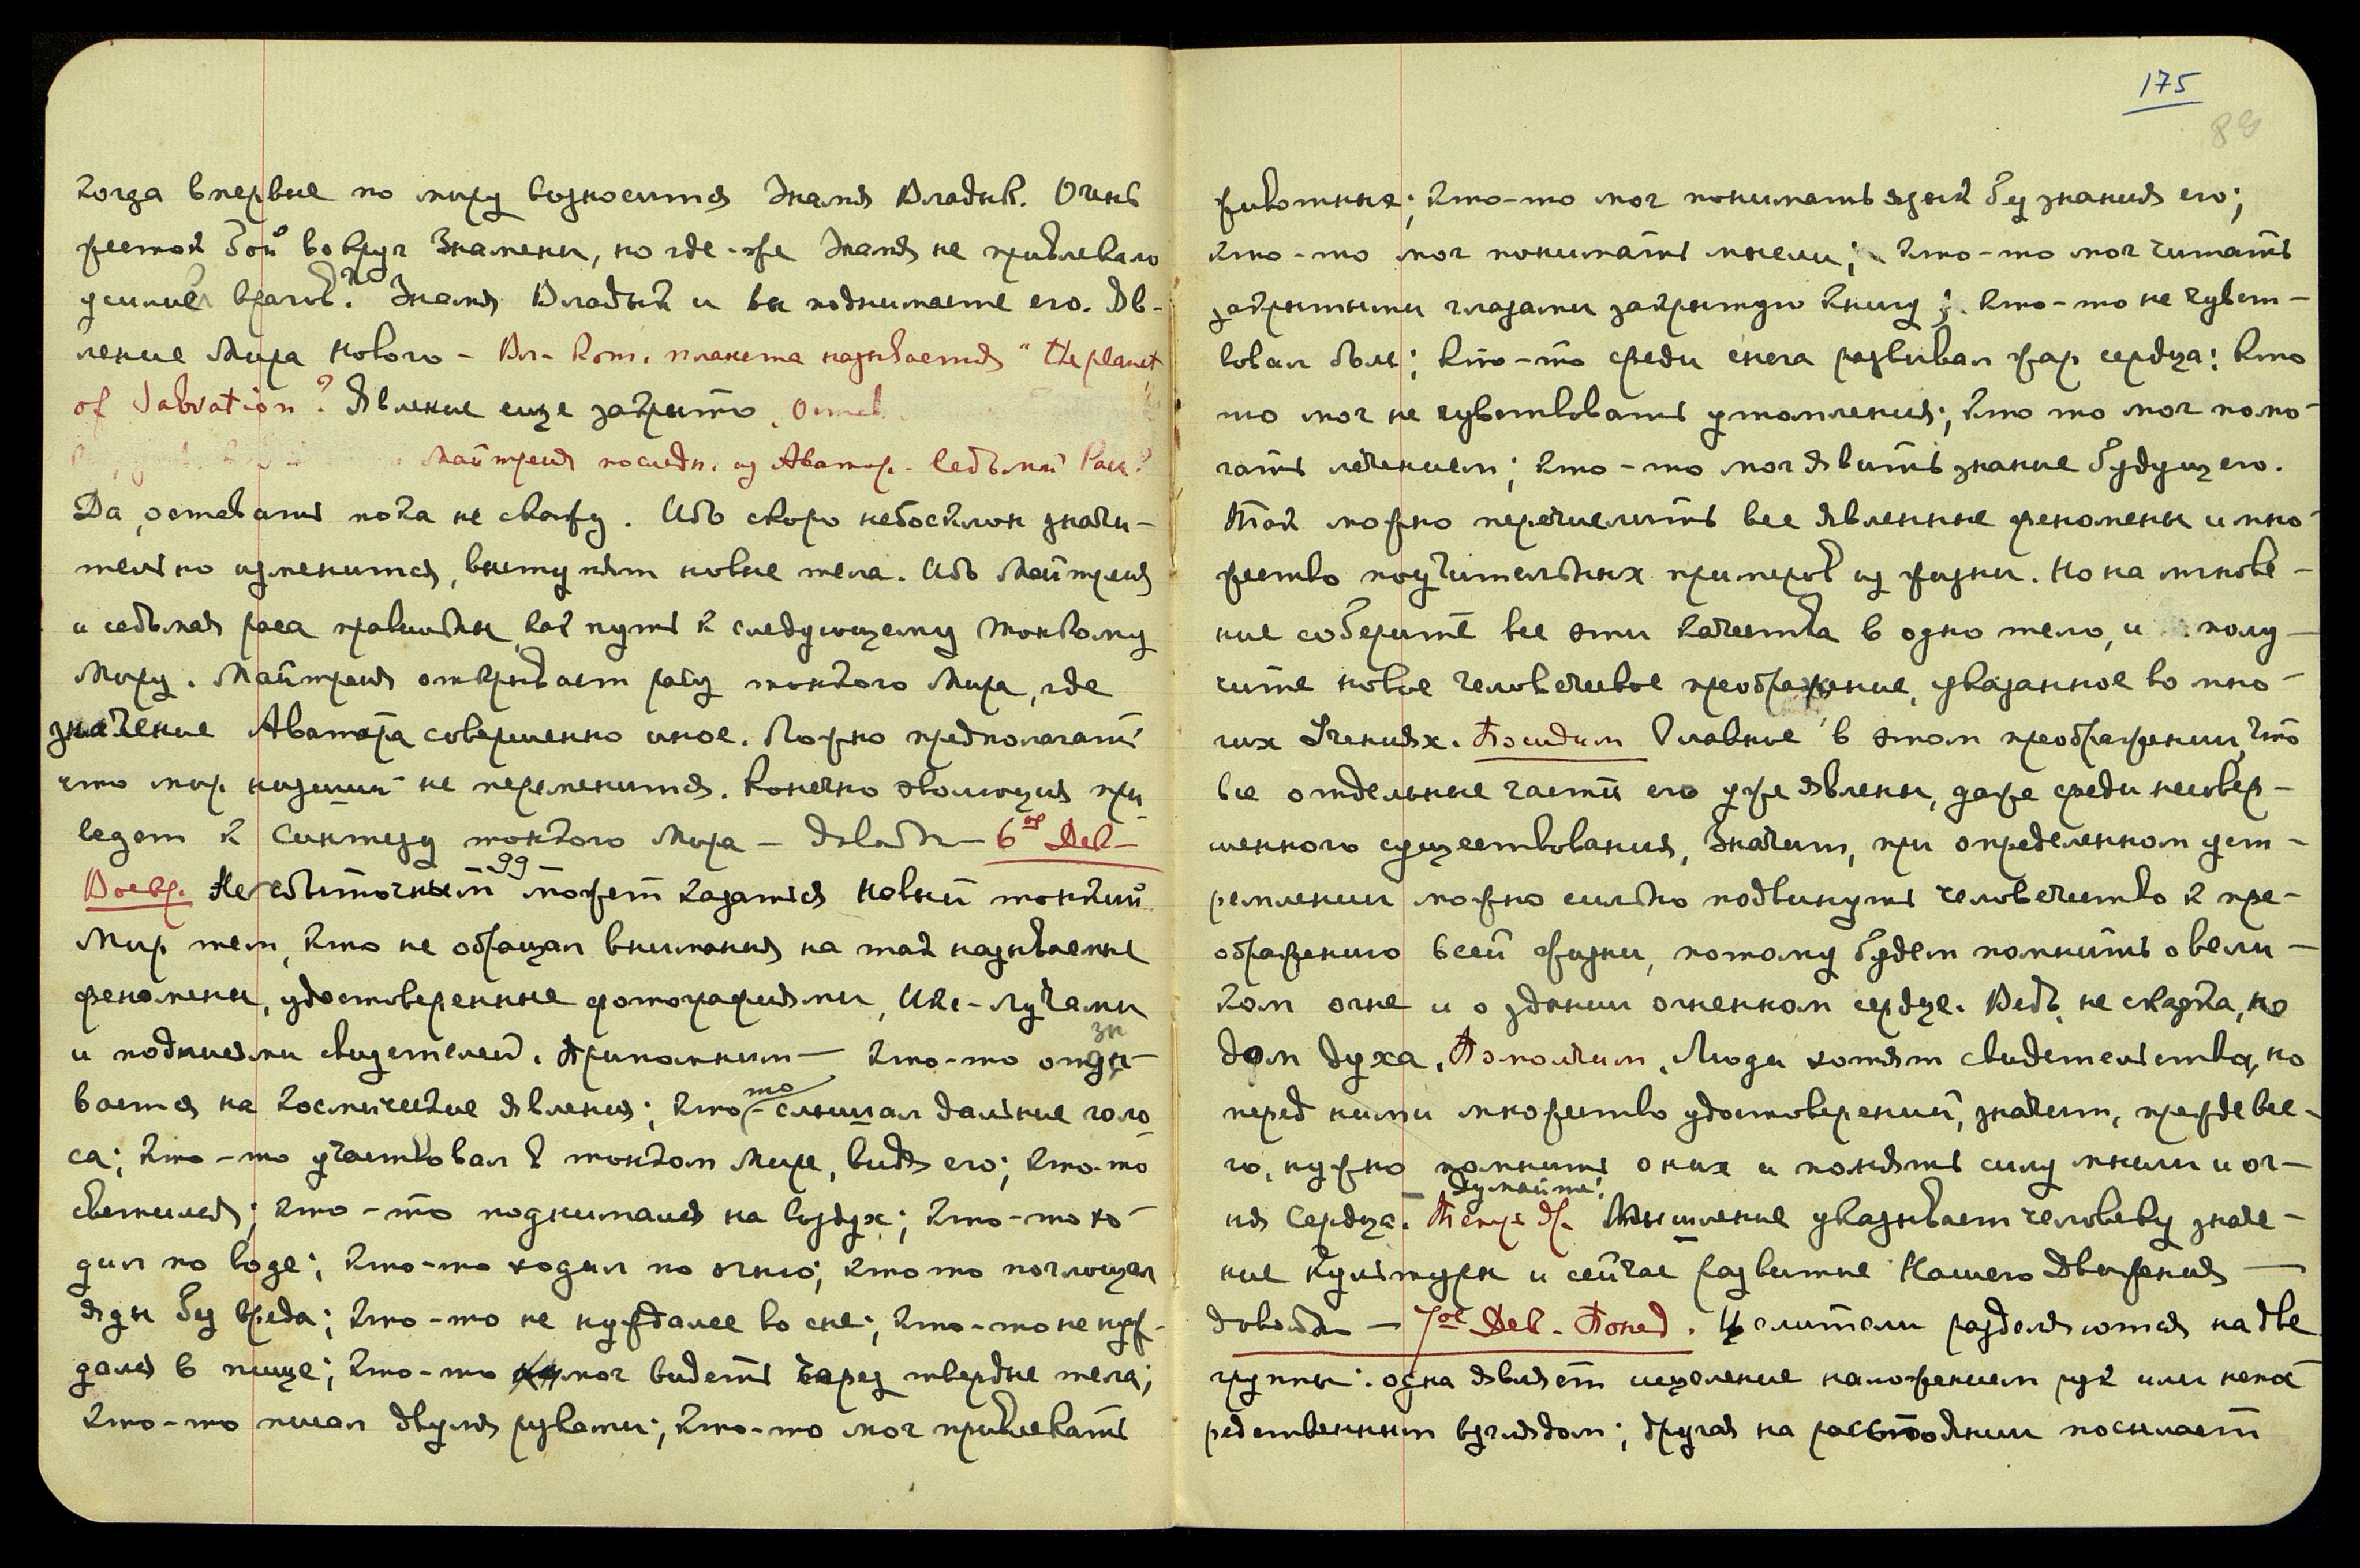 когда впервые по миру возносится Знамя Владык. Очень
жесток бой вокруг Знамени, но где-же Знамя не привлекало
усилие врагов? Знамя Владык и вы поднимаете его. Яв-
ление Мира Нового – Вл. Кот. планета называется "the planet
of Salvation"? Явление еще закрыто. Остав
Майтрея последн. из Аватар. Седьмой Расы?
Да, оставить пока не скажу. Ибо скоро небосклон значи-
тельно изменится, вступят новые тела. Ибо Майтрея
и седьмая раса правильны, как путь к следующему тонкому
Миру. Майтрея открывает расу тонкого Мира, где
значение Аватара совершенно иное. Можно предполагать
что мир низший не переменится. Конечно эволюция при-
ведет к Синтезу тонкого Мира – довольно – 6ое Дек –
Воскр. Несбыточным может казаться новый тонкий
– 99 –
Мир тем, кто не обращал внимания на так называемые
феномены, удостоверенные фотографиями, Икс-лучами
и показаниями свидетелей. Припомним – кто-то отзы-
вается на космические явления; кто-то слышал дальние голо-
са; кто-то участвовал в тонком Мире, видя его; кто-то
светился; кто-то поднимался на воздух; кто-то хо-
дил по воде; кто-то ходил по огню; кто то поглощал
яды без вреда; кто-то не нуждался во сне; кто-то не нуж-
дался в пище; кто-то мог видеть через твердые тела;
кто-то писал двумя руками; кто-то мог привлекать
175
89
животных; кто-то мог понимать язык без знания его;
кто-то мог понимать мысли; кто-то мог читать
закрытыми глазами закрытую книгу; кто-то не чувст-
вовал боли; кто-то среди снега развивал жар сердца; кто
то мог не чувствовать утомления; кто то мог помо-
гать лечением; кто-то мог явить знание будущего.
Так можно перечислить все явленные феномены и мно-
жество поучительных примеров из жизни. Но на мгнове-
ние соберите все эти качества в одно тело, и полу-
чите новое человеческое преображение, указанное во мно-
гих Учениях. Посидим Главное в этом преображении, что
все отдельные части его уже явлены, даже среди несовер-
шенного существования, Значит, при определенном уст-
ремлении можно сильно подвинуть человечество к пре-
ображению всей жизни, потому будем помнить о вели-
ком огне и о здании огненном сердце. Ведь не сказка, но
дом духа. Помолчим. Люди хотят свидетельства, но
перед ними множество удостоверений, значит, прежде все-
го, нужно помнить о них и понять силу мысли и ог-
ня Сердца. Думайте! Мышление указывает человеку значе-
ние Культуры и сейчас развитие Нашего Движения –
довольно – 7ое Дек. Понед. Целители разделяются на две
группы: одна являет исцеление наложением рук или непос-
редственным взглядом; другая на расстоянии посылает